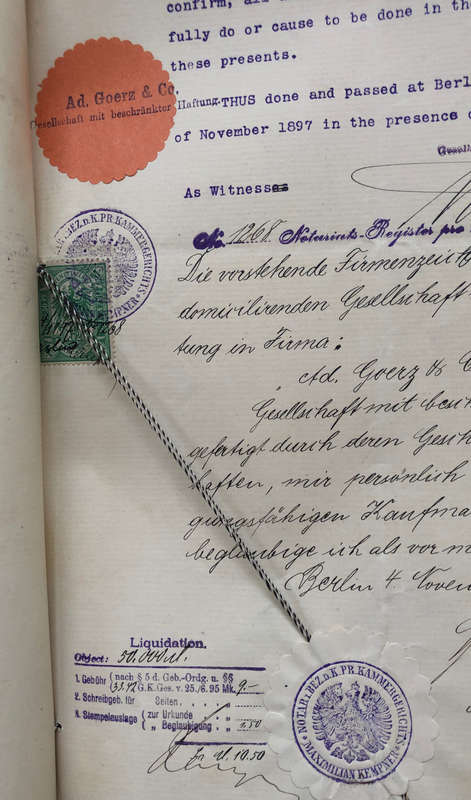 confirm, all
fully do or cause to be done in the
these presents.
Ad. Goerz & Co.
Gesellschaft mit beschränkter Haftung.
THUS done and passed at Berl
of November 1897 in the presence o
Gesell
As Witnesses
No. 1268 Notariats-Register pro
NOTAR I. BEZ. D. K. PR. KAMMERGERICHTS
KEMPNER
Die vorstehende Firmenzei
domicilirenden Gesellschaft
tung in Firma:
Ad. Goerz & C
Gesellschaft mit besch
gefertigt durch deren Gesch
haften, mir persönlich
gungsfähigen Kaufma
beglaubige ich als vor m
Berlin 4 Novem
Liquidation.
Object: 50.000 M.
1. Gebühr (nach § 5 d. Geb.-Ordg. u. §§
(31.42 G.K.Ges. v. 25./6. 95 Mk. 9.-
2. Schreibgeb. für Seiten „ „
3. Stempelauslage (zur Urkunde „ „
(„ Beglaubigung „ „ 1.50
M. 10.50
NOTAR I. BEZ. D. K. PR. KAMMERGERICHTS
MAXIMILIAN KEMPNER